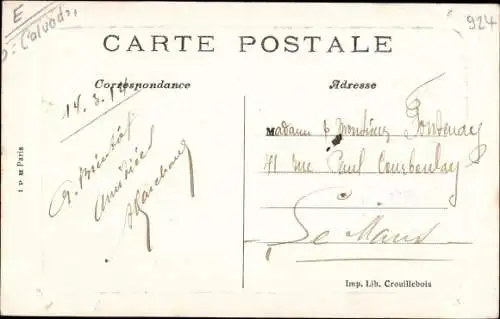 E
D: Calvados
924
CARTE POSTALE
Correspondance
Adresse
14.3.14
A Bientôt
Amitiés
Madame & Monsieur Fontenay
41 rue Paul Courboulay
Le Mans
1 Dr M Paris
Imp. Lib. Crouillebois